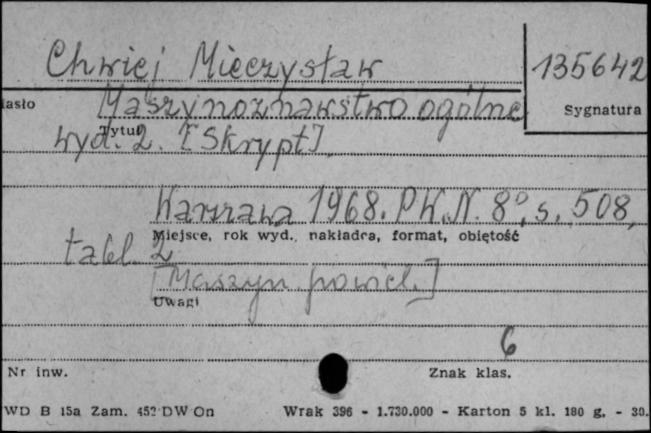 Chwiej Mieczysław
135642
iasło
Maszynoznawstwo ogólne
Sygnatura
Tytuł
wyd. 2. [Skrypt]
Warszawa 1968. PW.N. 8°, s. 508,
Miejsce, rok wyd., nakładca, format, objętość
tabl. 2
[Maszyn powiel.]
Uwagi
6
Nr inw.
Znak klas.
WD B 15a Zam. 452 DW On Wrak 396 - 1.730.000 - Karton 5 kl. 180 g. - 30.